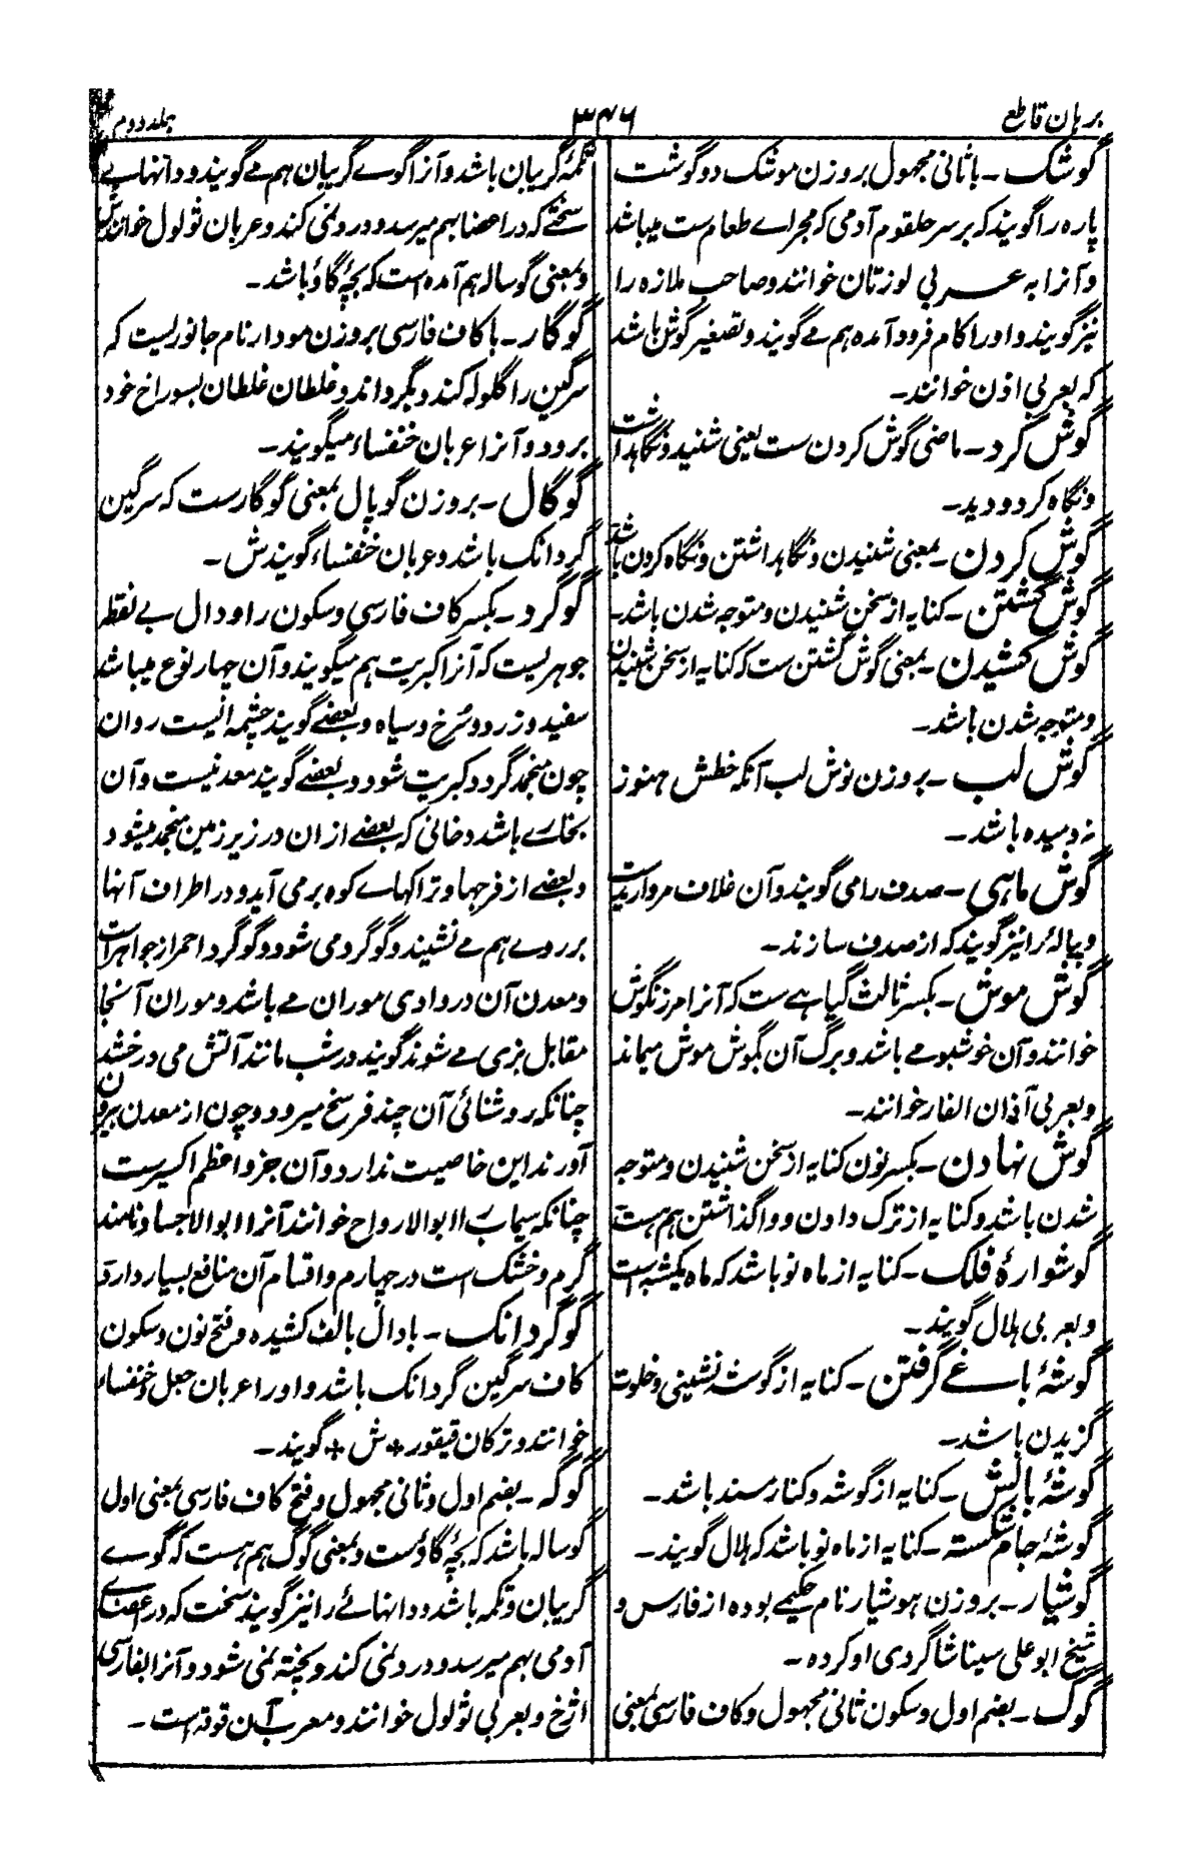 برہان قاطع
۳۷۶
جلد دوم
گوشک ۔ باثانی مجہول بروزن موشک دو گوشت
پارہ را گویند کہ برسر حلقوم آدمی کہ مجراے طعام ست میباشد
و آنرا بہ عربی لوزتان خوانند و صاحب ملازہ را
نیز گویند و او را کام فرود آمدہ ہم مے گویند و تصغیر گوش باشد
کہ بعربی اذن خوانند۔
گوش کرد ۔ ماضی گوش کردن ست یعنی شنید و نگاہداشت
و نگاہ کرد و دید۔
گوش کردن ۔ بمعنی شنیدن و نگاہداشتن و نگاہ کردن باشد
گوش گشتن ۔ کنایہ از سخن شنیدن و متوجہ شدن باشد۔
گوش کشیدن ۔ بمعنی گوش گشتن ست کہ کنایہ از سخن شنیدن
و متوجہ شدن باشد۔
گوش لب ۔ بروزن نوش لب آنکہ خطش ہنوز
نہ دمیدہ باشد۔
گوش ماہی ۔ صدف را می گویند و آن غلاف مرواریدست
و پیالہ را نیز گویند کہ از صدف سازند۔
گوش موش ۔ بکسر ثالث گیاہے ست کہ آنرا مرزنگوش
خوانند و آن خوشبو مے باشد و برگ آن بگوش موش میماند
و بعربی آذان الفار خوانند۔
گوش نہادن ۔ بکسر نون کنایہ از سخن شنیدن و متوجہ
شدن باشد و کنایہ از ترک دادن و واگذاشتن ہم ہست
گوشوارۂ فلک ۔ کنایہ از ماہ نو باشد کہ ماہ یکشبہ است
و بعربی ہلال گویند۔
گوشۂ باغے گرفتن ۔ کنایہ از گوشہ نشینی و خلوت
گزیدن باشد۔
گوشۂ بالش ۔ کنایہ از گوشہ و کنار مسند باشد۔
گوشۂ جام شکستہ ۔ کنایہ از ماہ نو باشد کہ ہلال گویند۔
گوشیار ۔ بروزن ہوشیار نام حکیمے بودہ از فارس و
شیخ ابوعلی سینا شاگردی او کردہ ۔
گوگ ۔ بضم اول و سکون ثانی مجہول و کاف فارسی بمعنی
تکمۂ گریبان باشد و آنرا گوے گریبان ہم مے گویند و دانہاے
سختے کہ در اعضا بہم میرسد و درد نمی کند و عربان ثولول خوانندش
و بمعنی گوسالہ ہم آمدہ است کہ بچۂ گاؤ باشد۔
گوگار ۔ باکاف فارسی بروزن مودار نام جانوریست کہ
سرگین را گلولہ کند و بگرداند و غلطان غلطان بسوراخ خود
برود و آنرا عربان خنفساء میگویند۔
گوگال ۔ بروزن گوپال بمعنی گوگارست کہ سرگین
گردانک باشد و عربان خنفساء گویندش ۔
گوگرد ۔ بکسر کاف فارسی و سکون را و دال بے نقطہ
جوہریست کہ آنرا کبریت ہم میگویند و آن چہار نوع میباشد
سفید و زرد و سرخ و سیاہ و بعضے گویند چشمہ ایست روان
چون منجمد گردد کبریت شود و بعضے گویند معدنیست و آن
بخارے باشد دخانی کہ بعضے از ان در زیر زمین منجمد میشود
و بعضے از فرجہا و تراکہاے کوہ بر می آید و در اطراف آنہا
بر روے ہم مے نشیند و گوگرد می شود و گوگرد احمر از جواہرات
و معدن آن در وادی موران مے باشد و موران آنجا
مقابل بزی مے شوند گویند در شب مانند آتش می درخشد
چنانکہ روشنائی آن چند فرسخ میرود و چون از معدن بیرون
آورند این خاصیت ندارد و آن جزو اعظم اکسیرست
چنانکہ سیماب را ابوالارواح خوانند آنرا ابوالاجساد نامند
گرم و خشک است در چہارم و اقسام آن منافع بسیار دارد
گوگردانک ۔ بادال بالف کشیدہ و فتح نون و سکون
کاف سرگین گردانک باشد و او را عربان جعل و خنفساء
خوانند و ترکان قیقور + ش + گویند ۔
گوگہ ۔ بضم اول و ثانی مجہول و فتح کاف فارسی بمعنی اول
گوسالہ باشد کہ بچۂ گاؤ ست و بمعنی گوگ ہم ہست کہ گوے
گریبان و تکمہ باشد و دانہائے را نیز گویند سخت کہ در اعضاے
آدمی بہم میرسد و درد نمی کند و پختہ نمی شود و آنرا بفارسی
اژخ و بعربی ثولول خوانند و معرب آن قوقہ است ۔